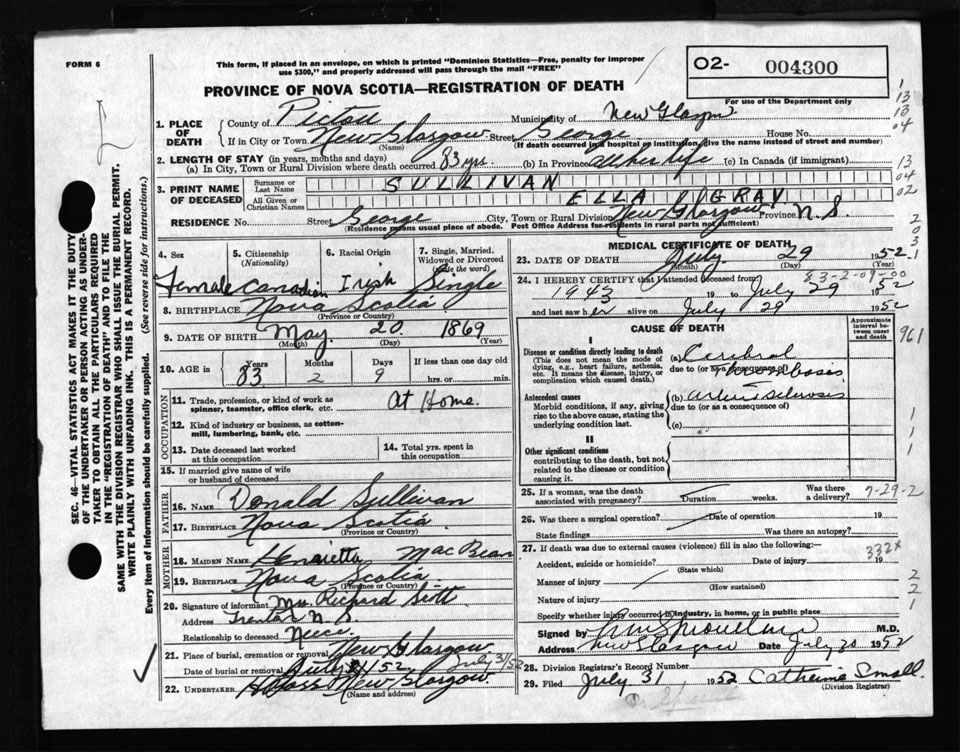 FORM 6
This form, if placed in an envelope, on which is printed "Dominion Statistics—Free, penalty for improper
use $300," and properly addressed will pass through the mail "FREE"
O2- 004300
For use of the Department only
PROVINCE OF NOVA SCOTIA—REGISTRATION OF DEATH
1. PLACE OF DEATH County of Pictou Municipality of
If in City or Town New Glasgow Street George House No.
(Name) (If death occurred in a hospital or institution, give the name instead of street and number)
2. LENGTH OF STAY (in years, months and days)
(a) In City, Town or Rural Division where death occurred 83 yrs. (b) In Province all her life (c) In Canada (if immigrant)
3. PRINT NAME OF DECEASED Surname or Last Name SULLIVAN
All Given or Christian Names ELLA GRAY
RESIDENCE No. Street George City, Town or Rural Division New Glasgow Province N.S.
(Residence means usual place of abode. Post Office Address for residents in rural parts not sufficient)
4. Sex 5. Citizenship (Nationality) 6. Racial Origin 7. Single, Married, Widowed or Divorced (write the word)
Female Canadian Irish Single
8. BIRTHPLACE Nova Scotia
(Province or Country)
9. DATE OF BIRTH May 20 1869
(Month) (Day) (Year)
10. AGE in Years Months Days If less than one day old
83 2 9 hrs. or min.
OCCUPATION
11. Trade, profession, or kind of work as
spinner, teamster, office clerk, etc. At Home.
12. Kind of industry or business, as cotton-
mill, lumbering, bank, etc.
13. Date deceased last worked at this occupation 14. Total yrs. spent in this occupation
15. If married give name of wife
or husband of deceased
FATHER
16. NAME Donald Sullivan
17. BIRTHPLACE Nova Scotia
(Province or Country)
MOTHER
18. MAIDEN NAME Henrietta MacBean
19. BIRTHPLACE Nova Scotia
(Province or Country)
20. Signature of informant Mrs. Richard
Address Trenton N.S.
Relationship to deceased Niece
21. Place of burial, cremation or removal New Glasgow
Date of burial or removal July 31/52 July 31/52
22. UNDERTAKER New Glasgow
(Name and address)
MEDICAL CERTIFICATE OF DEATH
23. DATE OF DEATH July 29 1952
(Month) (Day) (Year)
83-2-09-00
24. I HEREBY CERTIFY that I attended deceased from
1943 19 to July 29 1952
and last saw her alive on July 29 1952
CAUSE OF DEATH
Approximate interval between onset and death
I
Disease or condition directly leading to death (a) Cerebral
(This does not mean the mode of due to (or as a consequence of) Thrombosis
dying, e.g., heart failure, asthenia,
etc. It means the disease, injury, or
complication which caused death.)
Antecedent causes (b)
Morbid conditions, if any, giving due to (or as a consequence of)
rise to the above cause, stating the
underlying condition last. (c)
II
Other significant conditions
contributing to the death, but not
related to the disease or condition
causing it.
961
25. If a woman, was the death Was there
associated with pregnancy? Duration weeks. a delivery?
7-29-2
26. Was there a surgical operation? Date of operation 19
State findings Was there an autopsy?
27. If death was due to external causes (violence) fill in also the following:—
332x
Accident, suicide or homicide? Date of injury 19
(State which)
Manner of injury
(How sustained)
Nature of injury
Specify whether injury occurred in industry, in home, or in public place
Signed by M.D.
Address New Glasgow Date July 30 1952
28. Division Registrar's Record Number
29. Filed July 31 1952 Catherine Small
(Division Registrar)
SEC. 46—VITAL STATISTICS ACT MAKES IT THE DUTY
OF THE UNDERTAKER OR PERSON ACTING AS UNDER-
TAKER TO OBTAIN ALL THE PARTICULARS REQUIRED
IN THE "REGISTRATION OF DEATH" AND TO FILE THE
SAME WITH THE DIVISION REGISTRAR WHO SHALL ISSUE THE BURIAL PERMIT.
WRITE PLAINLY WITH UNFADING INK. THIS IS A PERMANENT RECORD.
Every item of information should be carefully supplied. (See reverse side for instructions.)